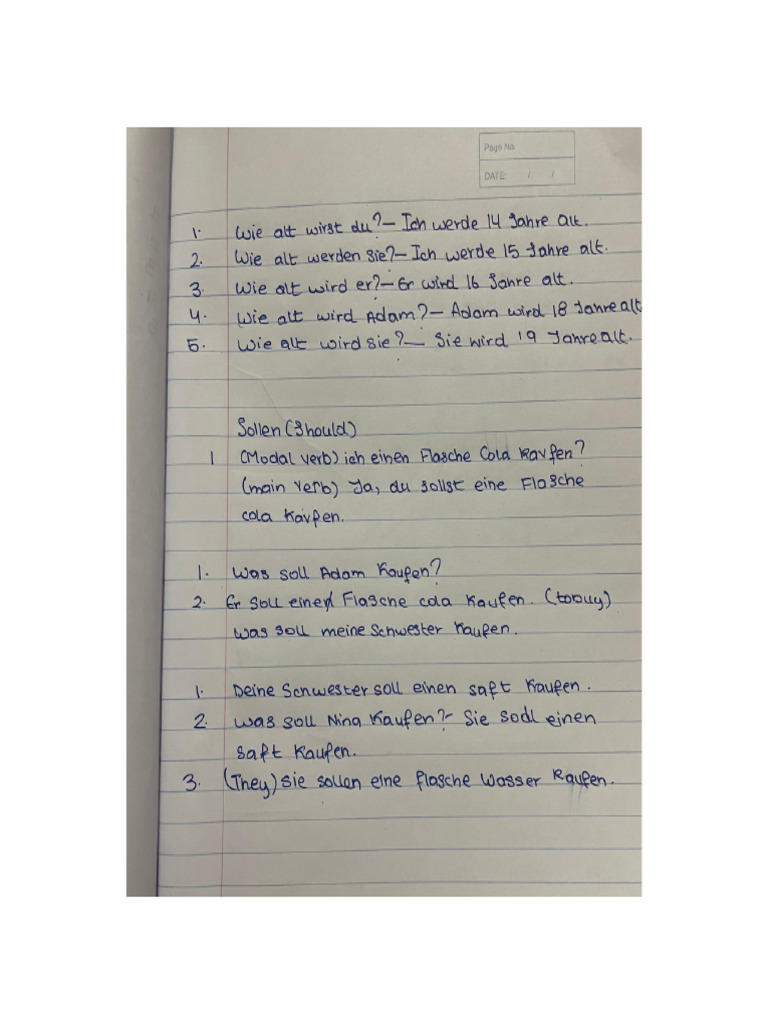 Page No.
DATE: / /
1. Wie alt wirst du? – Ich werde 14 Jahre alt.
2. Wie alt werden sie? – Ich werde 15 Jahre alt.
3. Wie alt wird er? – Er wird 16 Jahre alt.
4. Wie alt wird Adam? – Adam wird 18 Jahre alt
5. Wie alt wird sie? – Sie wird 19 Jahre alt.
Sollen (Should)
1 (Modal verb) ich einen Flasche Cola Kavfen?
(main verb) Ja, du sollst eine Flasche
cola Kavfen.
1. Was soll Adam Kaufen?
2. Er soll eine Flasche cola Kaufen. (to buy)
was soll meine Schwester Kaufen.
1. Deine Schwester soll einen saft Kaufen.
2. Was soll Nina Kaufen? – Sie sodl einen
saft Kaufen.
3. (They) sie sollen eine flasche Wasser Kaufen.